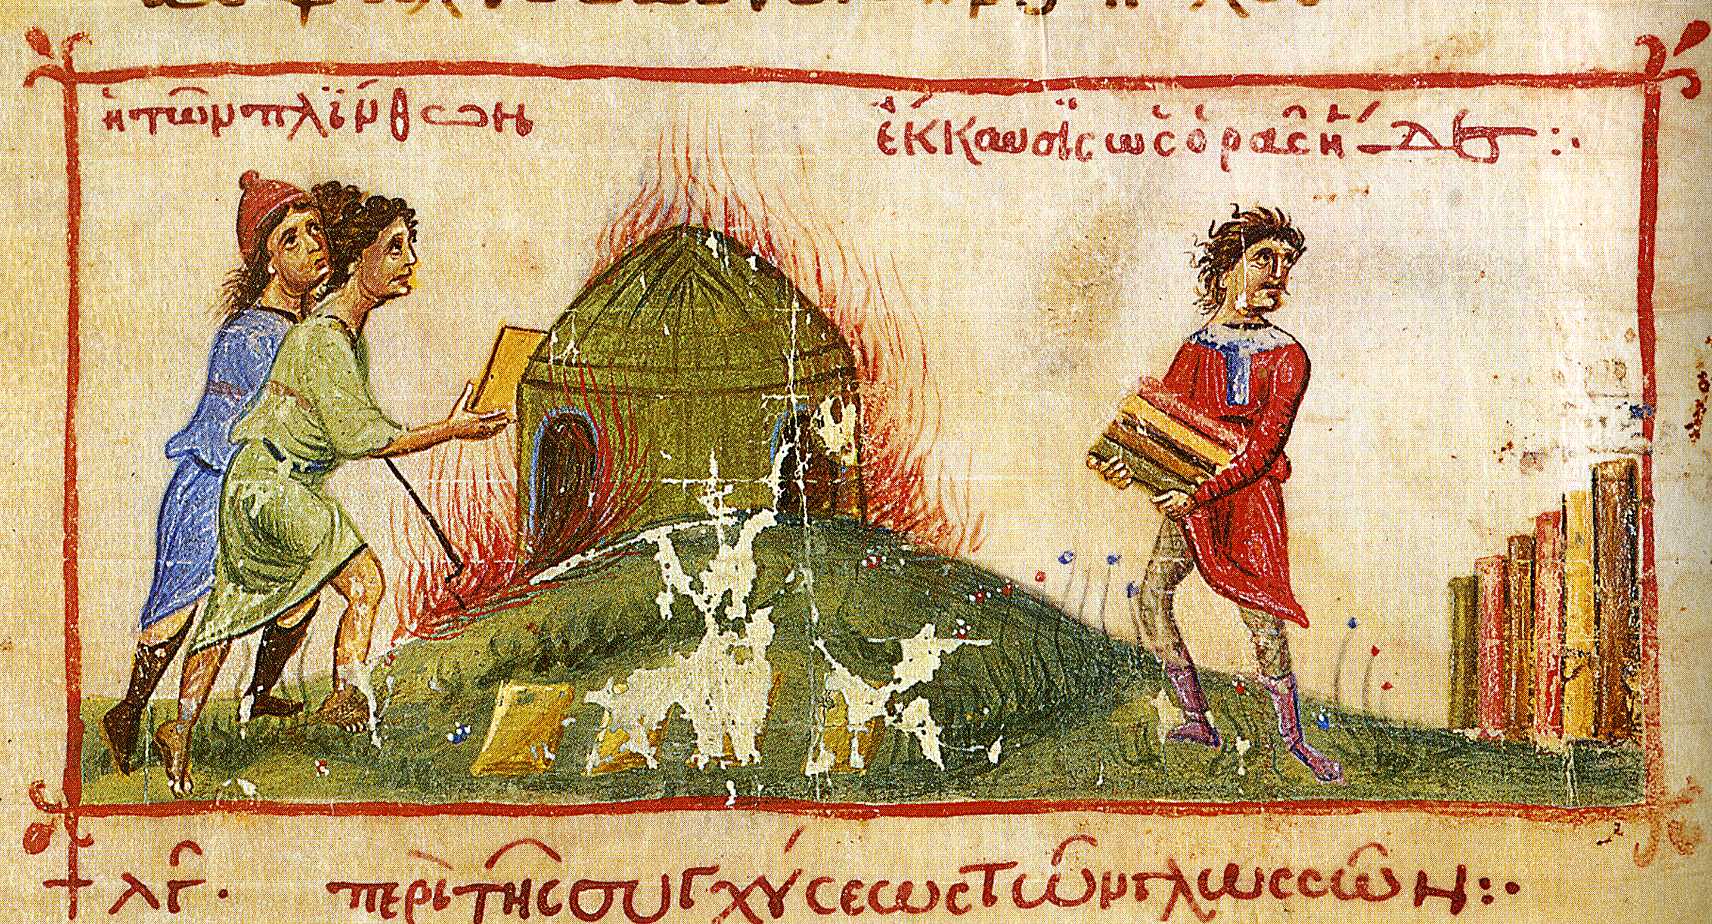 ἡ τῶν πλΐνθων ἔκκαυσϊς ὡς ὁρᾶς
λγ· περὶ τῆς συγχύσεως τῶν γλωσσῶν :·